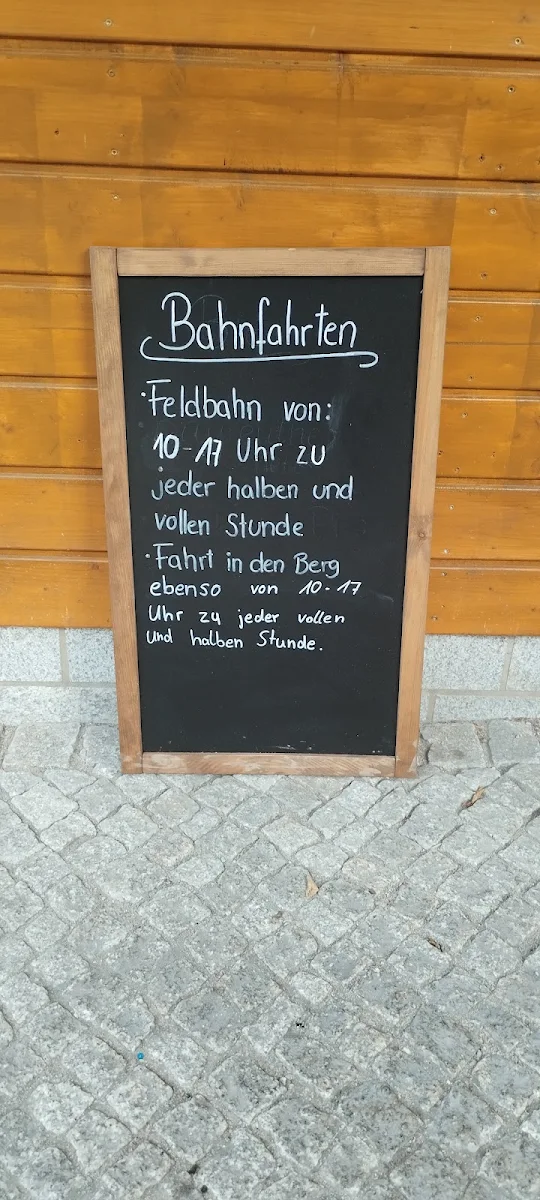 Bahnfahrten
· Feldbahn von:
10-17 Uhr zu
jeder halben und
vollen Stunde
· Fahrt in den Berg
ebenso von 10-17
Uhr zu jeder vollen
und halben Stunde.